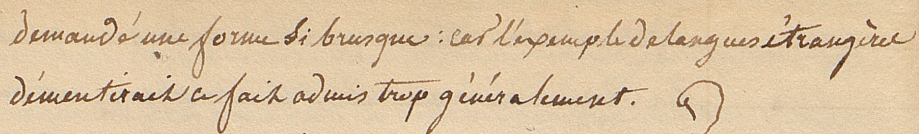 demandé une forme si brusque : car l'exemple de langues étrangères
démentirait ce fait admis trop généralement.